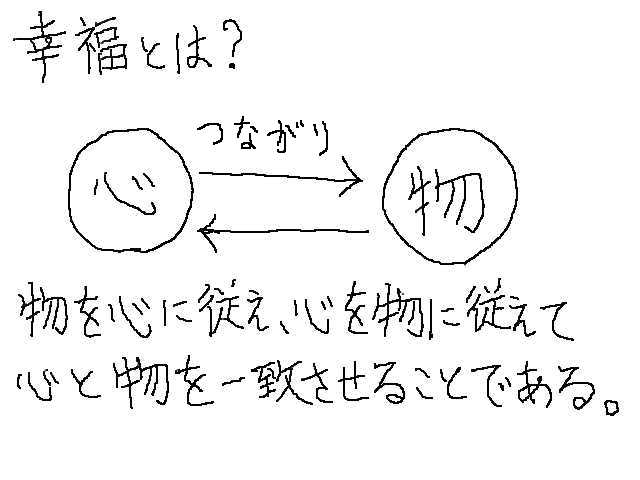 幸福とは?
つながり
心
物
物を心に従え、心を物に従えて
心と物を一致させることである。